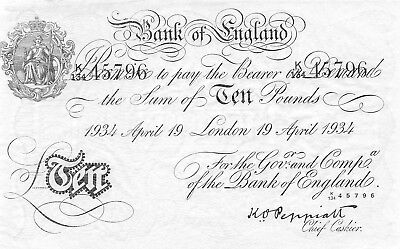 Bank of England
K/134 45796 K/134 45796
Promise to pay the Bearer on Demand
the Sum of Ten Pounds
1934 April 19 London 19 April 1934
For the Gov.r and Comp.a
of the Bank of England.
K/134 45796
£Ten
K.O. Peppiatt
Chief Cashier.